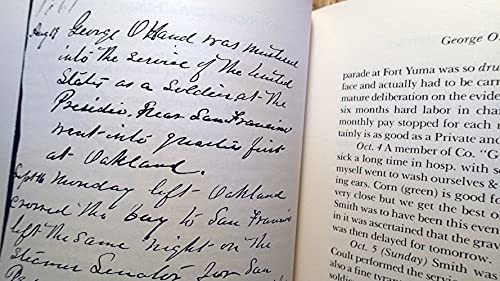 1861
Aug 17 George O Hand was mustered
into the service of the United
States as a Soldier at the
Presidio, Near San Francisco
went into quarters first
at Oakland.
Sept Monday left Oakland,
crossed the bay to San Francisco
left the same night on the
Steamer Senator for San
George O.
parade at Fort Yuma was so dru
face and actually had to be carri
mature deliberation on the evide
six months hard labor in char
monthly pay stopped for each m
tainly is good as a Private and
Oct. 4 A member of Co. "G
sick a long time in hosp. with se
myself went to washout ourselves &
ing ears. Corn (green) is good f
very close but we get the best o
Smith was to have been this even
in it was ascertained that the gra
was then delayed for tomorrow.
Oct. 5 (Sunday) Smith was
Coult performed the service
also a fine tyran